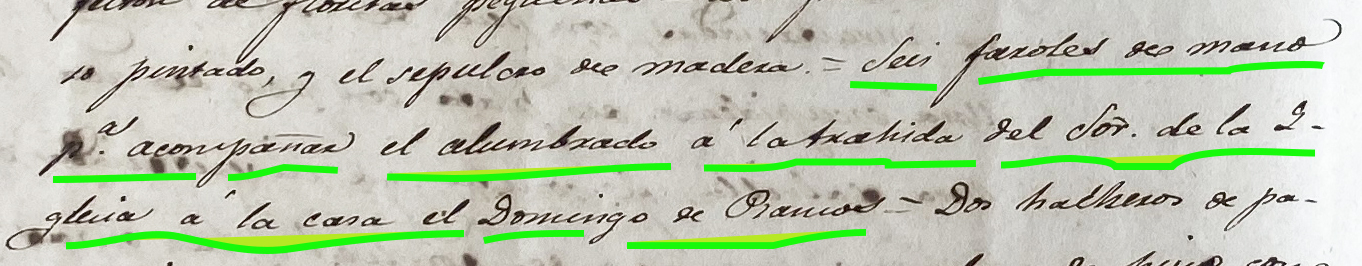 de floritas pequeñas
so pintado, y el sepulcro de madera. = Seis faroles de mano
p.ª acompañar el alumbrado á la trahida del Sor. de la I-
glecia á la casa el Domingo de Ramos = Dos hacheros de pa-